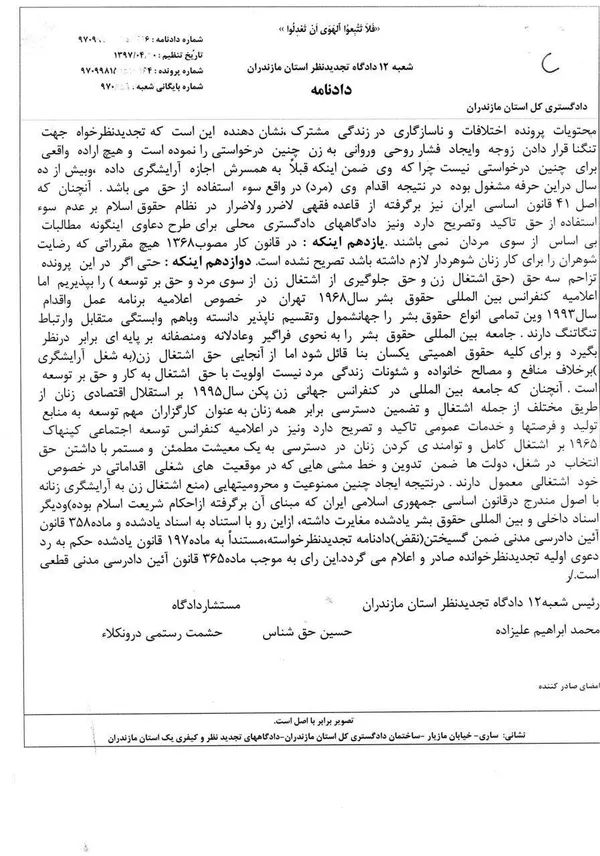 «فَلاَ تَتَّبِعوُا اَلْهَوَی اَنْ تَعْدِلُوا »
شماره دادنامه :
تاریخ تنظیم : ۱۳۹۷/۰۴/
شعبه ۱۲ دادگاه تجدیدنظر استان مازندران
شماره پرونده :
شماره بایگانی شعبه :
دادنامه
دادگستری کل استان مازندران
محتویات پرونده اختلافات و ناسازگاری در زندگی مشترک ،نشان دهنده این است که تجدیدنظرخواه جهت
تنگنا قرار دادن زوجه وایجاد فشار روحی وروانی به زن چنین درخواستی را نموده است و هیچ اراده واقعی
برای چنین درخواستی نیست چرا که وی ضمن اینکه قبلاً به همسرش اجازه آرایشگری داده ،وبیش از ده
سال دراین حرفه مشغول بوده در نتیجه اقدام وی (مرد) در واقع سوء استفاده از حق می باشد . آنچنان که
اصل ۴۱ قانون اساسی ایران نیز برگرفته از قاعده فقهی لاضرر ولاضرار در نظام حقوق اسلام بر عدم سوء
استفاده از حق تاکید وتصریح دارد ونیز دادگاههای دادگستری محلی برای طرح دعاوی اینگونه مطالبات
بی اساس از سوی مردان نمی باشند .یازدهم اینکه : در قانون کار مصوب۱۳۶۸ هیچ مقرراتی که رضایت
شوهران را برای کار زنان شوهردار لازم داشته باشد تصریح نشده است. دوازدهم اینکه : حتی اگر در این پرونده
تزاحم سه حق (حق اشتغال زن و حق جلوگیری از اشتغال زن از سوی مرد و حق بر توسعه ) را بپذیریم اما
اعلامیه کنفرانس بین المللی حقوق بشر سال۱۹۶۸ تهران در خصوص اعلامیه برنامه عمل واقدام
سال۱۹۹۳ وین تمامی انواع حقوق بشر را جهانشمول وتقسیم ناپذیر دانسته وباهم وابستگی متقابل وارتباط
تنگاتنگ دارند . جامعه بین المللی حقوق بشر را به نحوی فراگیر وعادلانه ومنصفانه بر پایه ای برابر درنظر
بگیرد و برای کلیه حقوق اهمیتی یکسان بنا قائل شود اما از آنجایی حق اشتغال زن(به شغل آرایشگری
)برخلاف منافع و مصالح خانواده و شئونات زندگی مرد نیست اولویت با حق اشتغال به کار و حق بر توسعه
است . آنچنان که جامعه بین المللی در کنفرانس جهانی زن پکن سال۱۹۹۵ بر استقلال اقتصادی زنان از
طریق مختلف از جمله اشتغال و تضمین دسترسی برابر همه زنان به عنوان کارگزاران مهم توسعه به منابع
تولید و فرصتها و خدمات عمومی تاکید و تصریح دارد ونیز در اعلامیه کنفرانس توسعه اجتماعی کپنهاک
۱۹۶۵ بر اشتغال کامل و توامند ی کردن زنان در دسترسی به یک معیشت مطمئن و مستمر با داشتن حق
انتخاب در شغل، دولت ها ضمن تدوین و خط مشی هایی که در موقعیت های شغلی اقداماتی در خصوص
خود اشتغالی معمول دارند . درنتیجه ایجاد چنین ممنوعیت و محرومیتهایی (منع اشتغال زن به آرایشگری زنانه
با اصول مندرج درقانون اساسی جمهوری اسلامی ایران که مبنای آن برگرفته ازاحکام شریعت اسلام بوده)ودیگر
اسناد داخلی و بین المللی حقوق بشر یادشده مغایرت داشته، ازاین رو با استناد به اسناد یادشده و ماده۳۵۸ قانون
آئین دادرسی مدنی ضمن گسیختن(نقض)دادنامه تجدیدنظرخواسته،مستنداً به ماده۱۹۷ قانون یادشده حکم به رد
دعوی اولیه تجدیدنظرخوانده صادر و اعلام می گردد.این رای به موجب ماده۳۶۵ قانون آئین دادرسی مدنی قطعی
است./ر
رئیس شعبه۱۲ دادگاه تجدیدنظر استان مازندران
مستشاردادگاه
محمد ابراهیم علیزاده
حسین حق شناس
حشمت رستمی درونکلاء
امضای صادر کننده
تصویر برابر با اصل است.
نشانی: ساری- خیابان مازیار -ساختمان دادگستری کل استان مازندران-دادگاههای تجدید نظر و کیفری یک استان مازندران